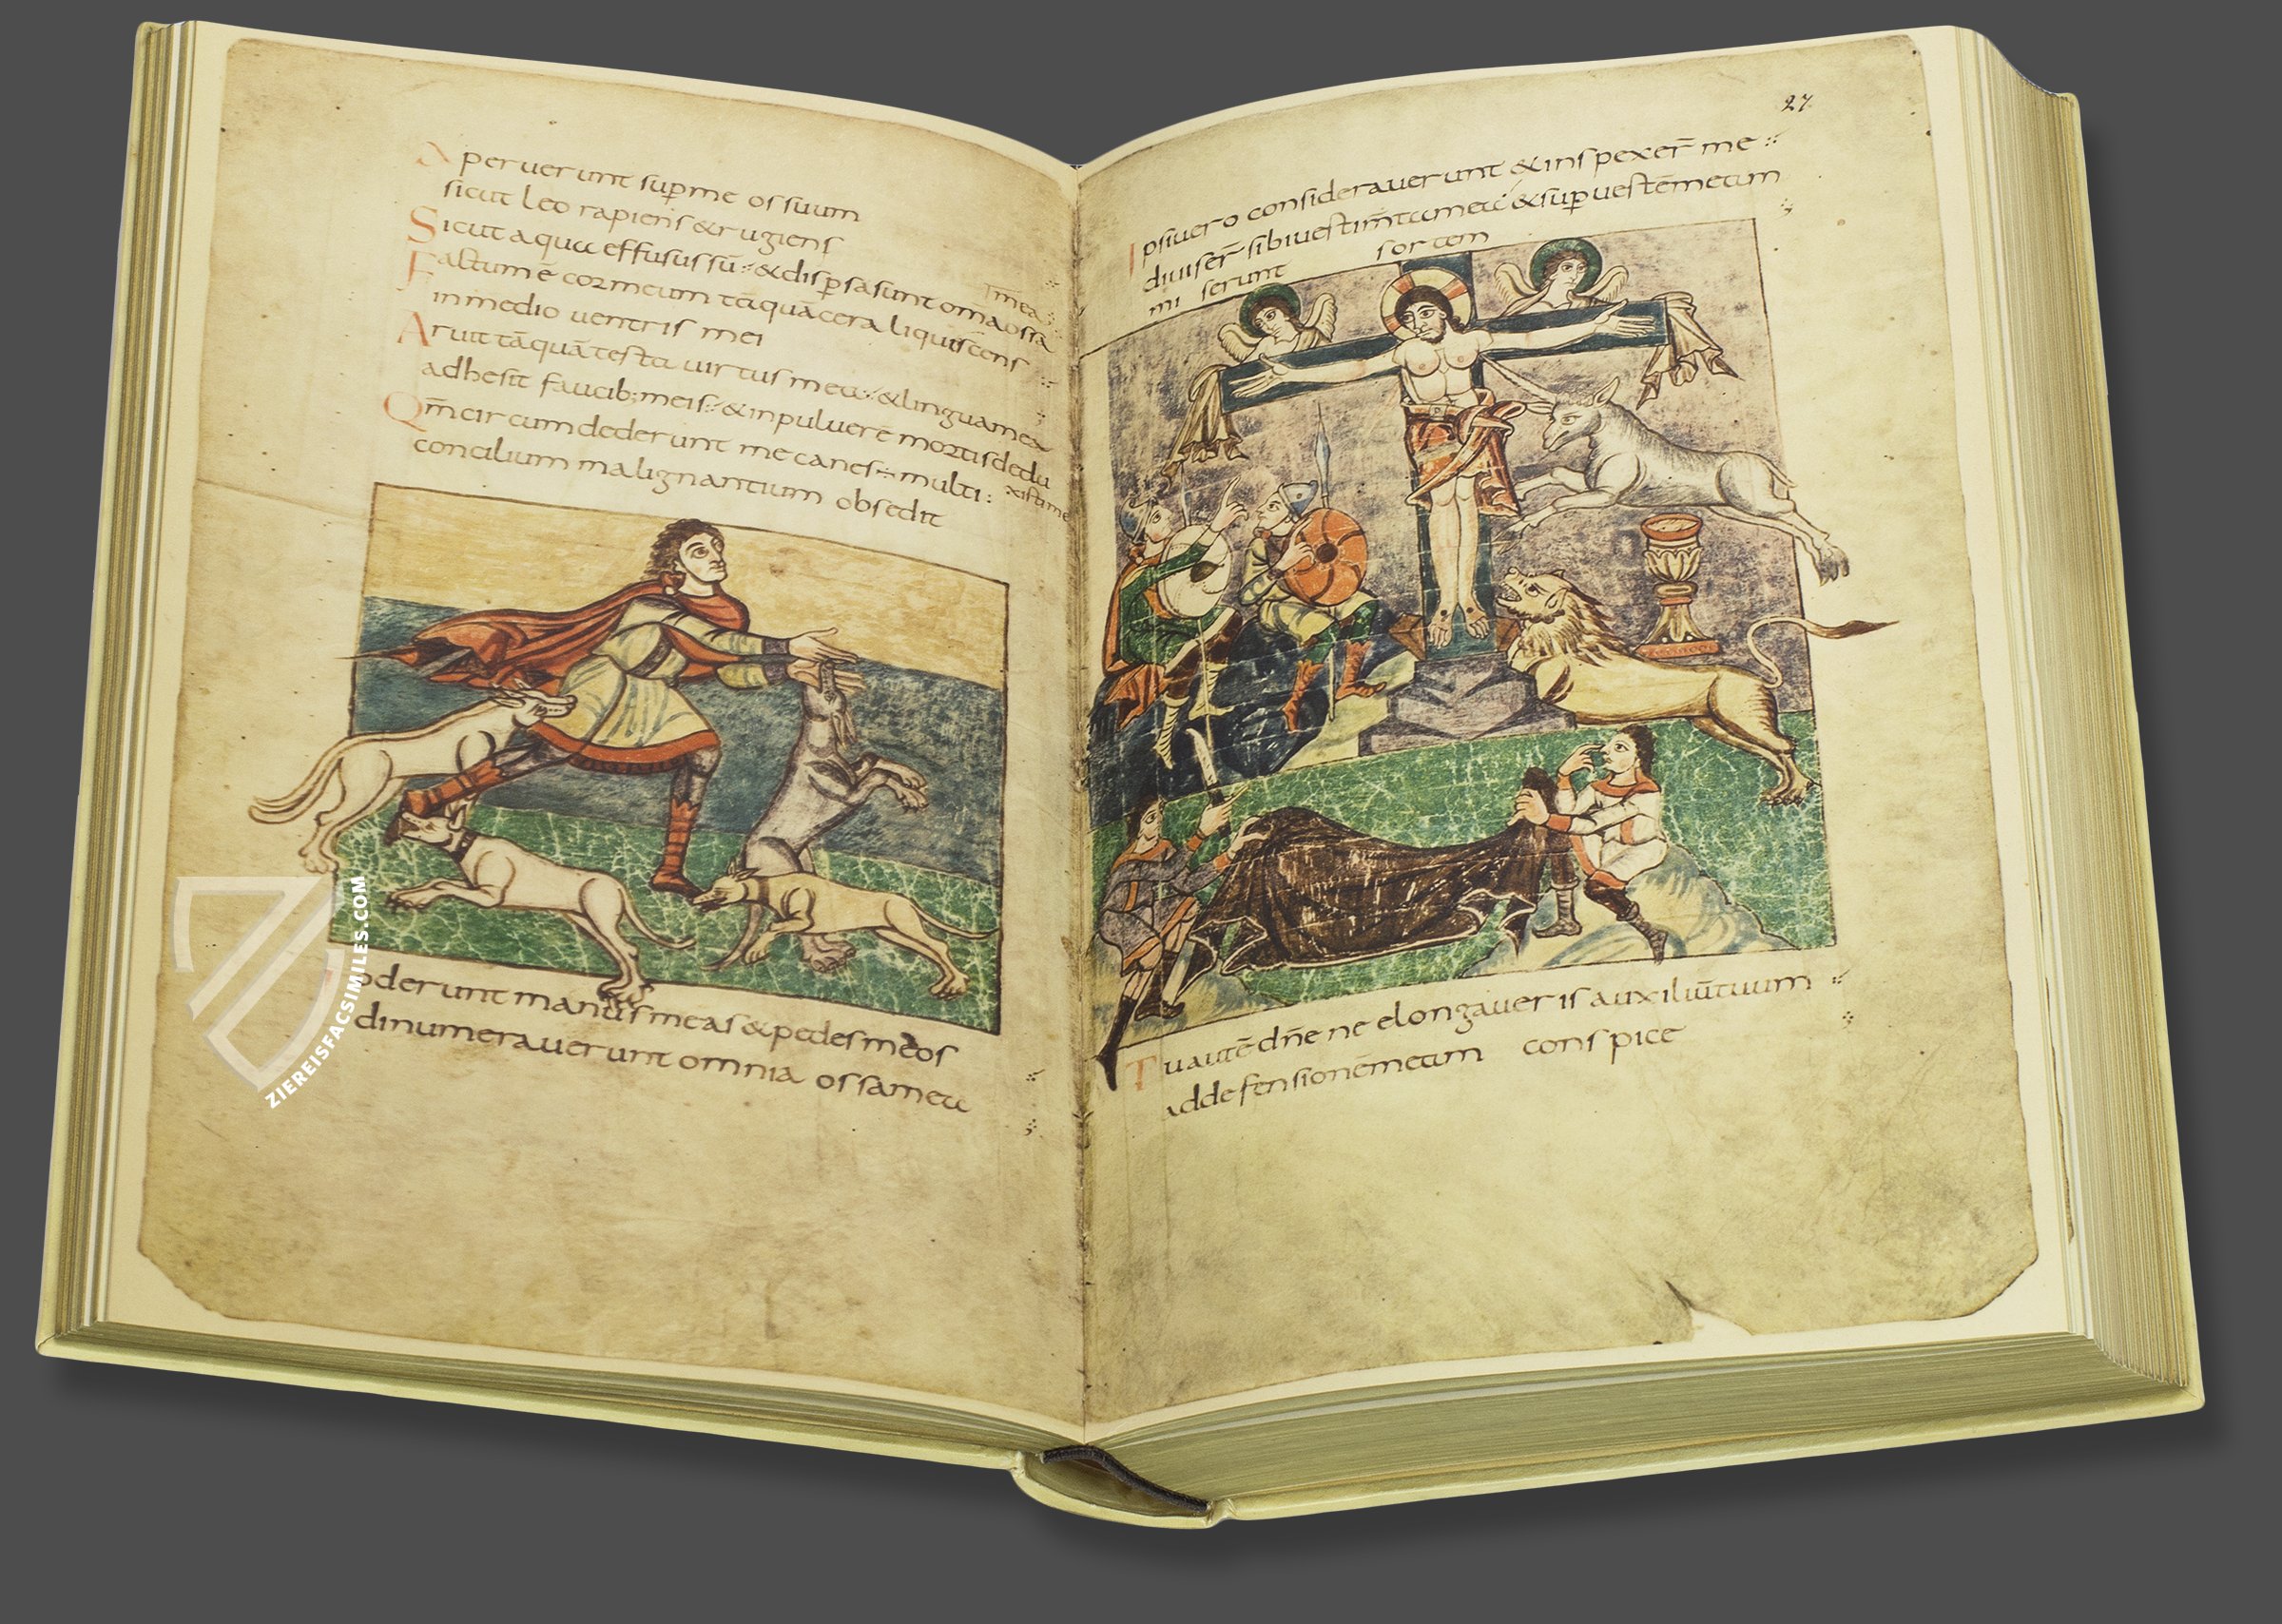 Aperuerunt sup̄me os suum
sicut leo rapiens & rugiens
Sicut aqua effusus sū & disp̄sa sunt om̄a ossa
mea
Factum ē cor meum tāquā cera liquiscens
in medio uentris mei
Aruit tāquā testa uirtus mea & lingua mea
adhesit faucib; meis & in puluerē mortis dedu
xisti me
Qm̄ circumdederunt me canes multi
concilium malignantium obsedit
oderunt manus meas & pedes meos
dinumerauerunt omnia ossa mea
ZIEREISFACSIMILES.COM
27
Ipsi uero considerauerunt & inspexer̄ me
diuiser̄ sibi uestim̄ta mea & sup̄ uestēmeam
miserunt sortem
Tu autē dn̄e ne elongaueris auxiliū tuum
ad defensionē meam conspice